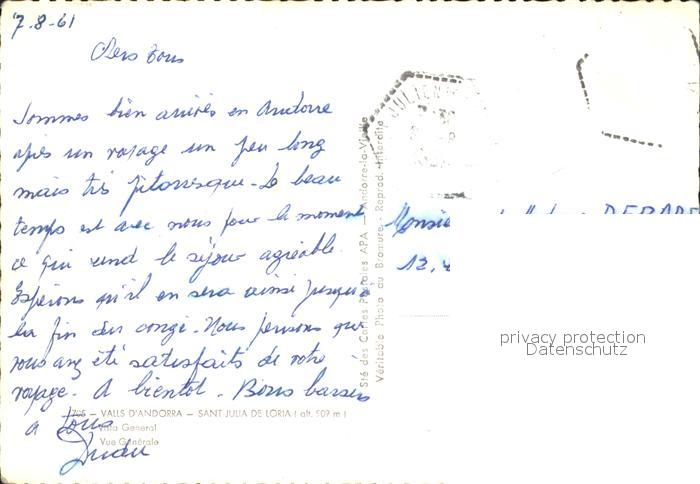 7-8-61
Chers tous
Sommes bien arrivés en Andorre
après un voyage un peu long
mais très pittoresque. Le beau
temps est avec nous pour le moment
ce qui rend le séjour agréable.
Espérons qu'il en sera ainsi jusqu'à
la fin du congé. Nous pensons que
vous avez été satisfaits de votre
voyage. A bientôt. Bons baisers
à tous
705 — VALLS D'ANDORRA — SANT JULIA DE LORIA ( alt. 909 m )
Vista General
Vue Générale
Sté des Cartes Postales APA — Andorre-la-Vieille
Véritable Photo au Bromure - Reprod. Interdite
JULIEN
Monsie
DEBARE
12,
privacy protection
Datenschutz